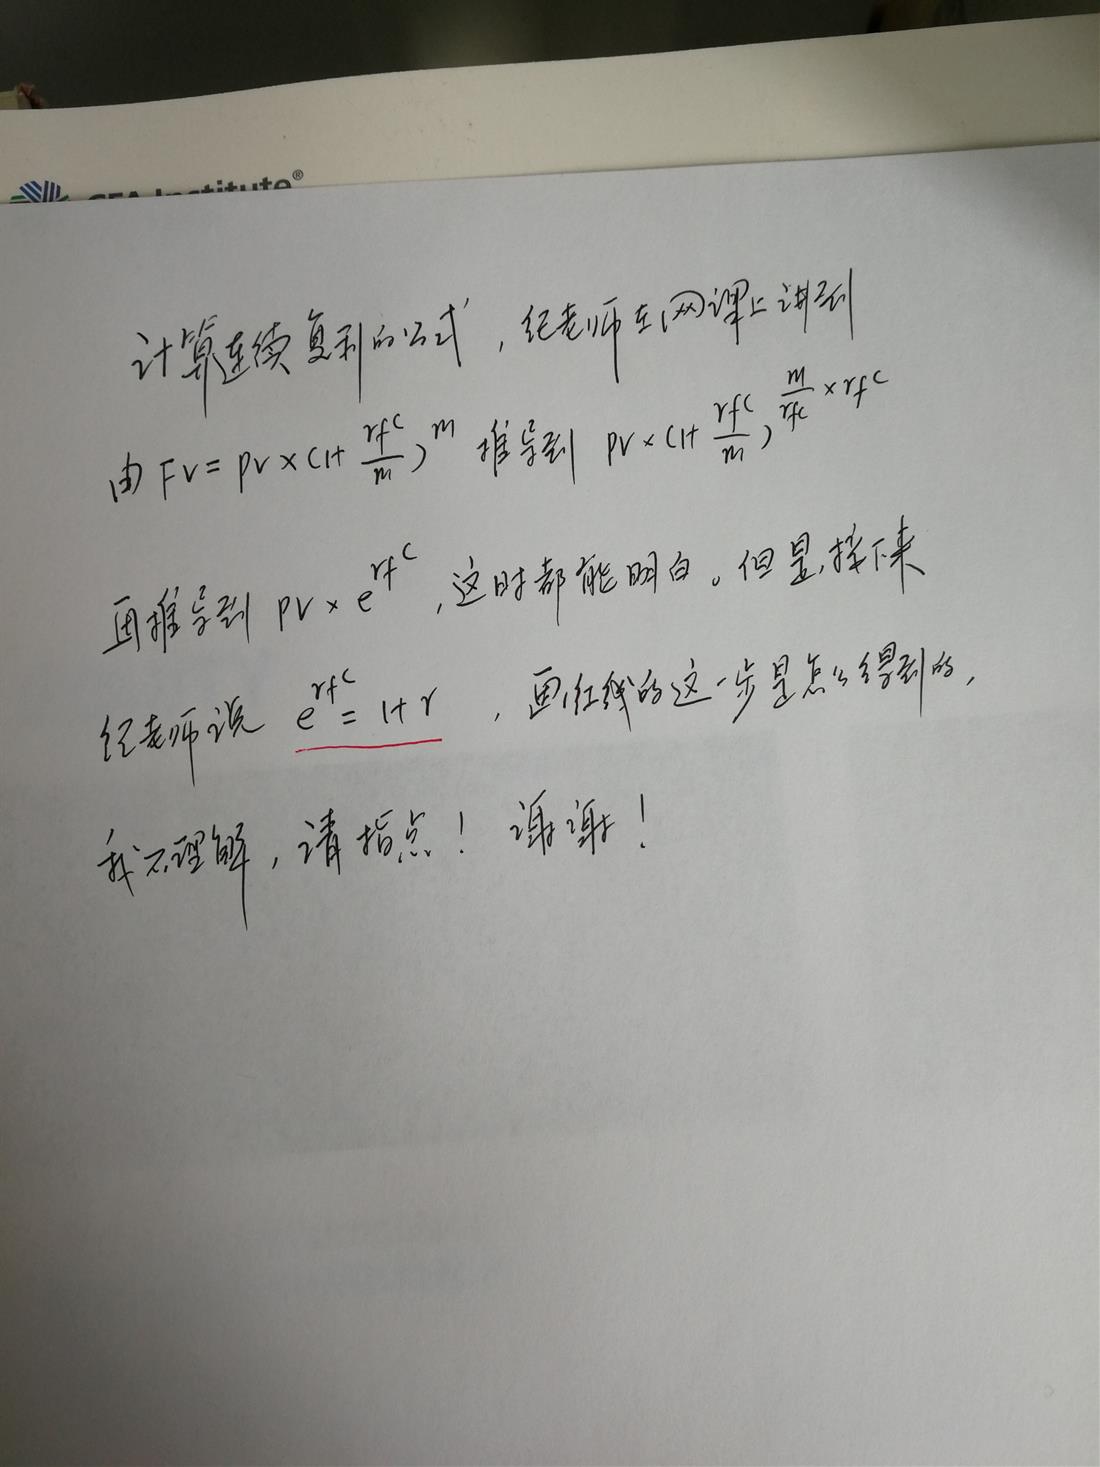 CFA Institute®
计算连续复利的公式，纪老师在网课上讲到
由 FV = PV × (1+ rfc/m)^m 推导到 PV × (1+ rfc/m)^(m/rfc × rfc)
再推导到 PV × e^rfc，这时都能明白。但是，接下来
纪老师说 e^rfc = 1+r ，画红线的这一步是怎么得到的，
我不理解，请指点！谢谢！